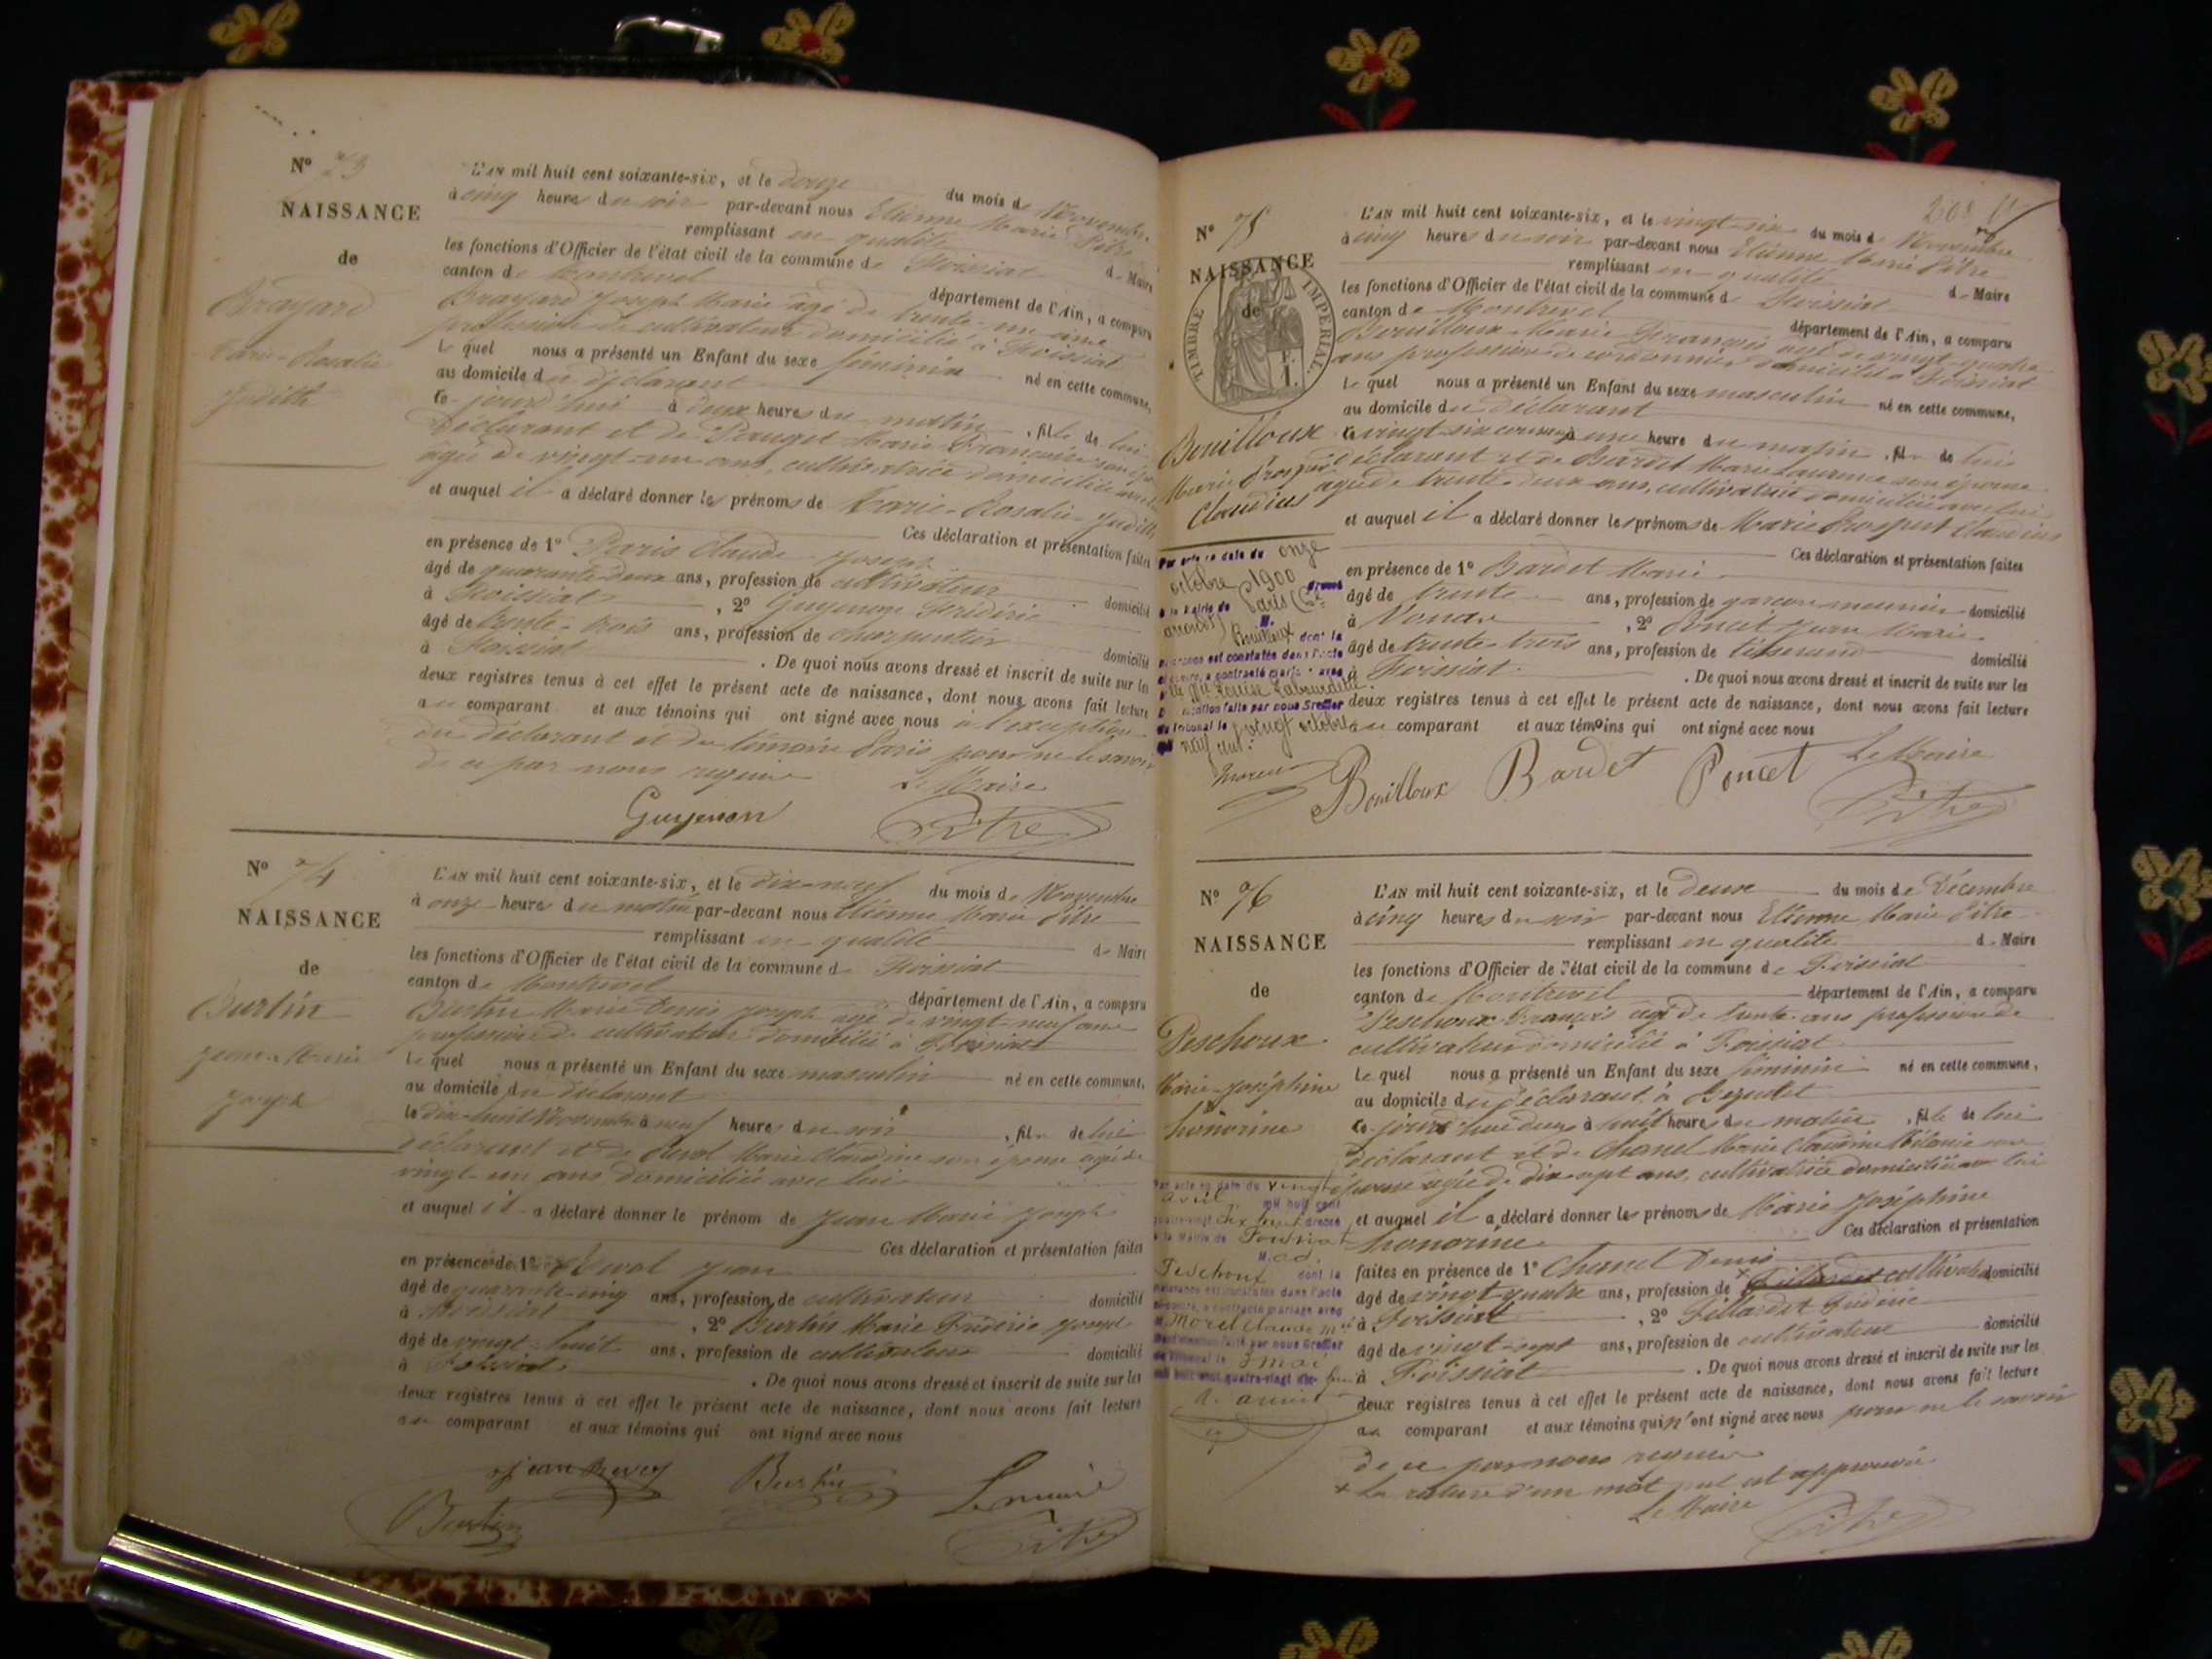 N° 73
NAISSANCE
de
Brayard
Marie-Rosalie
Judith
L'AN mil huit cent soixante-six, et le douze du mois de Novembre
à cinq heures du soir par-devant nous Etienne Marie Pitre
remplissant en qualité de Maire
les fonctions d'Officier de l'état civil de la commune de Foissiat
canton de Montrevel département de l'Ain, a comparu
Brayard Joseph Marie âgé de trente-un ans
profession de cultivateur domicilié à Foissiat
Le quel nous a présenté un Enfant du sexe féminin né en cette commune,
au domicile du déclarant
ce jourd'hui à deux heures du matin, fille de lui
déclarant et de Perruget Marie Françoise son épouse
âgée de vingt-un ans, cultivatrice domiciliée avec lui
et auquel il a déclaré donner les prénoms de Marie-Rosalie Judith
Ces déclaration et présentation faites
en présence de 1° Paris Claude Joseph
âgé de quarante-deux ans, profession de cultivateur domicilié
à Foissiat, 2° Guyenon Frédéric
âgé de trente-trois ans, profession de charpentier domicilié
à Foissiat. De quoi nous avons dressé et inscrit de suite sur les
deux registres tenus à cet effet le présent acte de naissance, dont nous avons fait lecture
au comparant et aux témoins qui ont signé avec nous à l'exception
du déclarant et du témoin Paris pour ne le savoir
de ce par nous requis
Le Maire
Guyenon Pitre
N° 74
NAISSANCE
de
Burtin
Jean-Marie
Joseph
L'AN mil huit cent soixante-six, et le dix-neuf du mois de Novembre
à onze heures du matin par-devant nous Etienne Marie Pitre
remplissant en qualité de Maire
les fonctions d'Officier de l'état civil de la commune de Foissiat
canton de Montrevel département de l'Ain, a comparu
Burtin Marie Denis Joseph âgé de vingt-neuf ans
profession de cultivateur domicilié à Foissiat
Le quel nous a présenté un Enfant du sexe masculin né en cette commune,
au domicile du déclarant
le dix-huit Novembre à neuf heures du soir, fils de lui
déclarant et de Revol Marie Claudine son épouse âgée de
vingt-un ans domiciliée avec lui
et auquel il a déclaré donner le prénom de Jean Marie Joseph
Ces déclaration et présentation faites
en présence de 1° Revol Jean
âgé de quarante-cinq ans, profession de cultivateur domicilié
à Foissiat, 2° Burtin Marie Frédéric Joseph
âgé de vingt-huit ans, profession de cultivateur domicilié
à Foissiat. De quoi nous avons dressé et inscrit de suite sur les
deux registres tenus à cet effet le présent acte de naissance, dont nous avons fait lecture
au comparant et aux témoins qui ont signé avec nous
jean Burtin Le maire
Burtin Pitre
208
N° 75
NAISSANCE
de
TIMBRE IMPERIAL
Bouilloux
Marie Prosper
Claudius
Par acte en date du onze
octobre 1900 dressé
à la Mairie de Paris
arrond.t M.
Bouilloux dont la
naissance est constatée dans l'acte
ci-contre, a contracté mariage avec
Louise
mention faite par nous Greffier
du tribunal le vingt octobre
mil neuf cent.
L'AN mil huit cent soixante-six, et le vingt-six du mois de Novembre
à cinq heures du soir par-devant nous Etienne Marie Pitre
remplissant en qualité de Maire
les fonctions d'Officier de l'état civil de la commune de Foissiat
canton de Montrevel département de l'Ain, a comparu
Bouilloux Marie François âgé de vingt-quatre
ans profession de cordonnier domicilié à Foissiat
Le quel nous a présenté un Enfant du sexe masculin né en cette commune,
au domicile du déclarant
le vingt-six courant à une heure du matin, fils de lui
déclarant et de Bardet Marie Laurence son épouse
âgée de trente-deux ans, cultivatrice domiciliée avec lui
et auquel il a déclaré donner les prénoms de Marie Prosper Claudius
Ces déclaration et présentation faites
en présence de 1° Bardet Marie
âgé de trente ans, profession de garçon meunier domicilié
à, 2° Poncet Jean Marie
âgé de trente-trois ans, profession de tisserand domicilié
à Foissiat. De quoi nous avons dressé et inscrit de suite sur les
deux registres tenus à cet effet le présent acte de naissance, dont nous avons fait lecture
au comparant et aux témoins qui ont signé avec nous
Le Maire
Bouilloux Bardet Poncet Pitre
N° 76
NAISSANCE
de
Peschoux
Marie-Joséphine
honorine
Par acte en date du vingt
avril mil huit cent
quatre-vingt dix huit dressé
à la Mairie de Foissiat
M. ad.
Peschoux dont la
naissance est constatée dans l'acte
ci-contre, a contracté mariage avec
Morel Claude M.
mention faite par nous Greffier
du tribunal le 3 mai
mil huit cent quatre-vingt dix huit
L'AN mil huit cent soixante-six, et le deux du mois de Décembre
à cinq heures du soir par-devant nous Etienne Marie Pitre
remplissant en qualité de Maire
les fonctions d'Officier de l'état civil de la commune de Foissiat
canton de Montrevel département de l'Ain, a comparu
Peschoux François âgé de trente ans profession de
cultivateur domicilié à Foissiat
Le quel nous a présenté un Enfant du sexe féminin né en cette commune,
au domicile du déclarant à
ce jourd'hui deux à huit heures du matin, fille de lui
déclarant et de Chanel Marie Claudine Mélanie son
épouse âgée de dix-sept ans, cultivatrice domiciliée avec lui
et auquel il a déclaré donner les prénoms de Marie Joséphine
honorine Ces déclaration et présentation
faites en présence de 1° Chanel Denis
âgé de vingt-quatre ans, profession de cultivateur domicilié
à Foissiat, 2° Pillardet Frédéric
âgé de vingt-sept ans, profession de cultivateur domicilié
à Foissiat. De quoi nous avons dressé et inscrit de suite sur les
deux registres tenus à cet effet le présent acte de naissance, dont nous avons fait lecture
au comparant et aux témoins qui n'ont signé avec nous pour ne le savoir
de ce par nous requis
+ La rature d'un mot nul est approuvée
Le Maire
Pitre